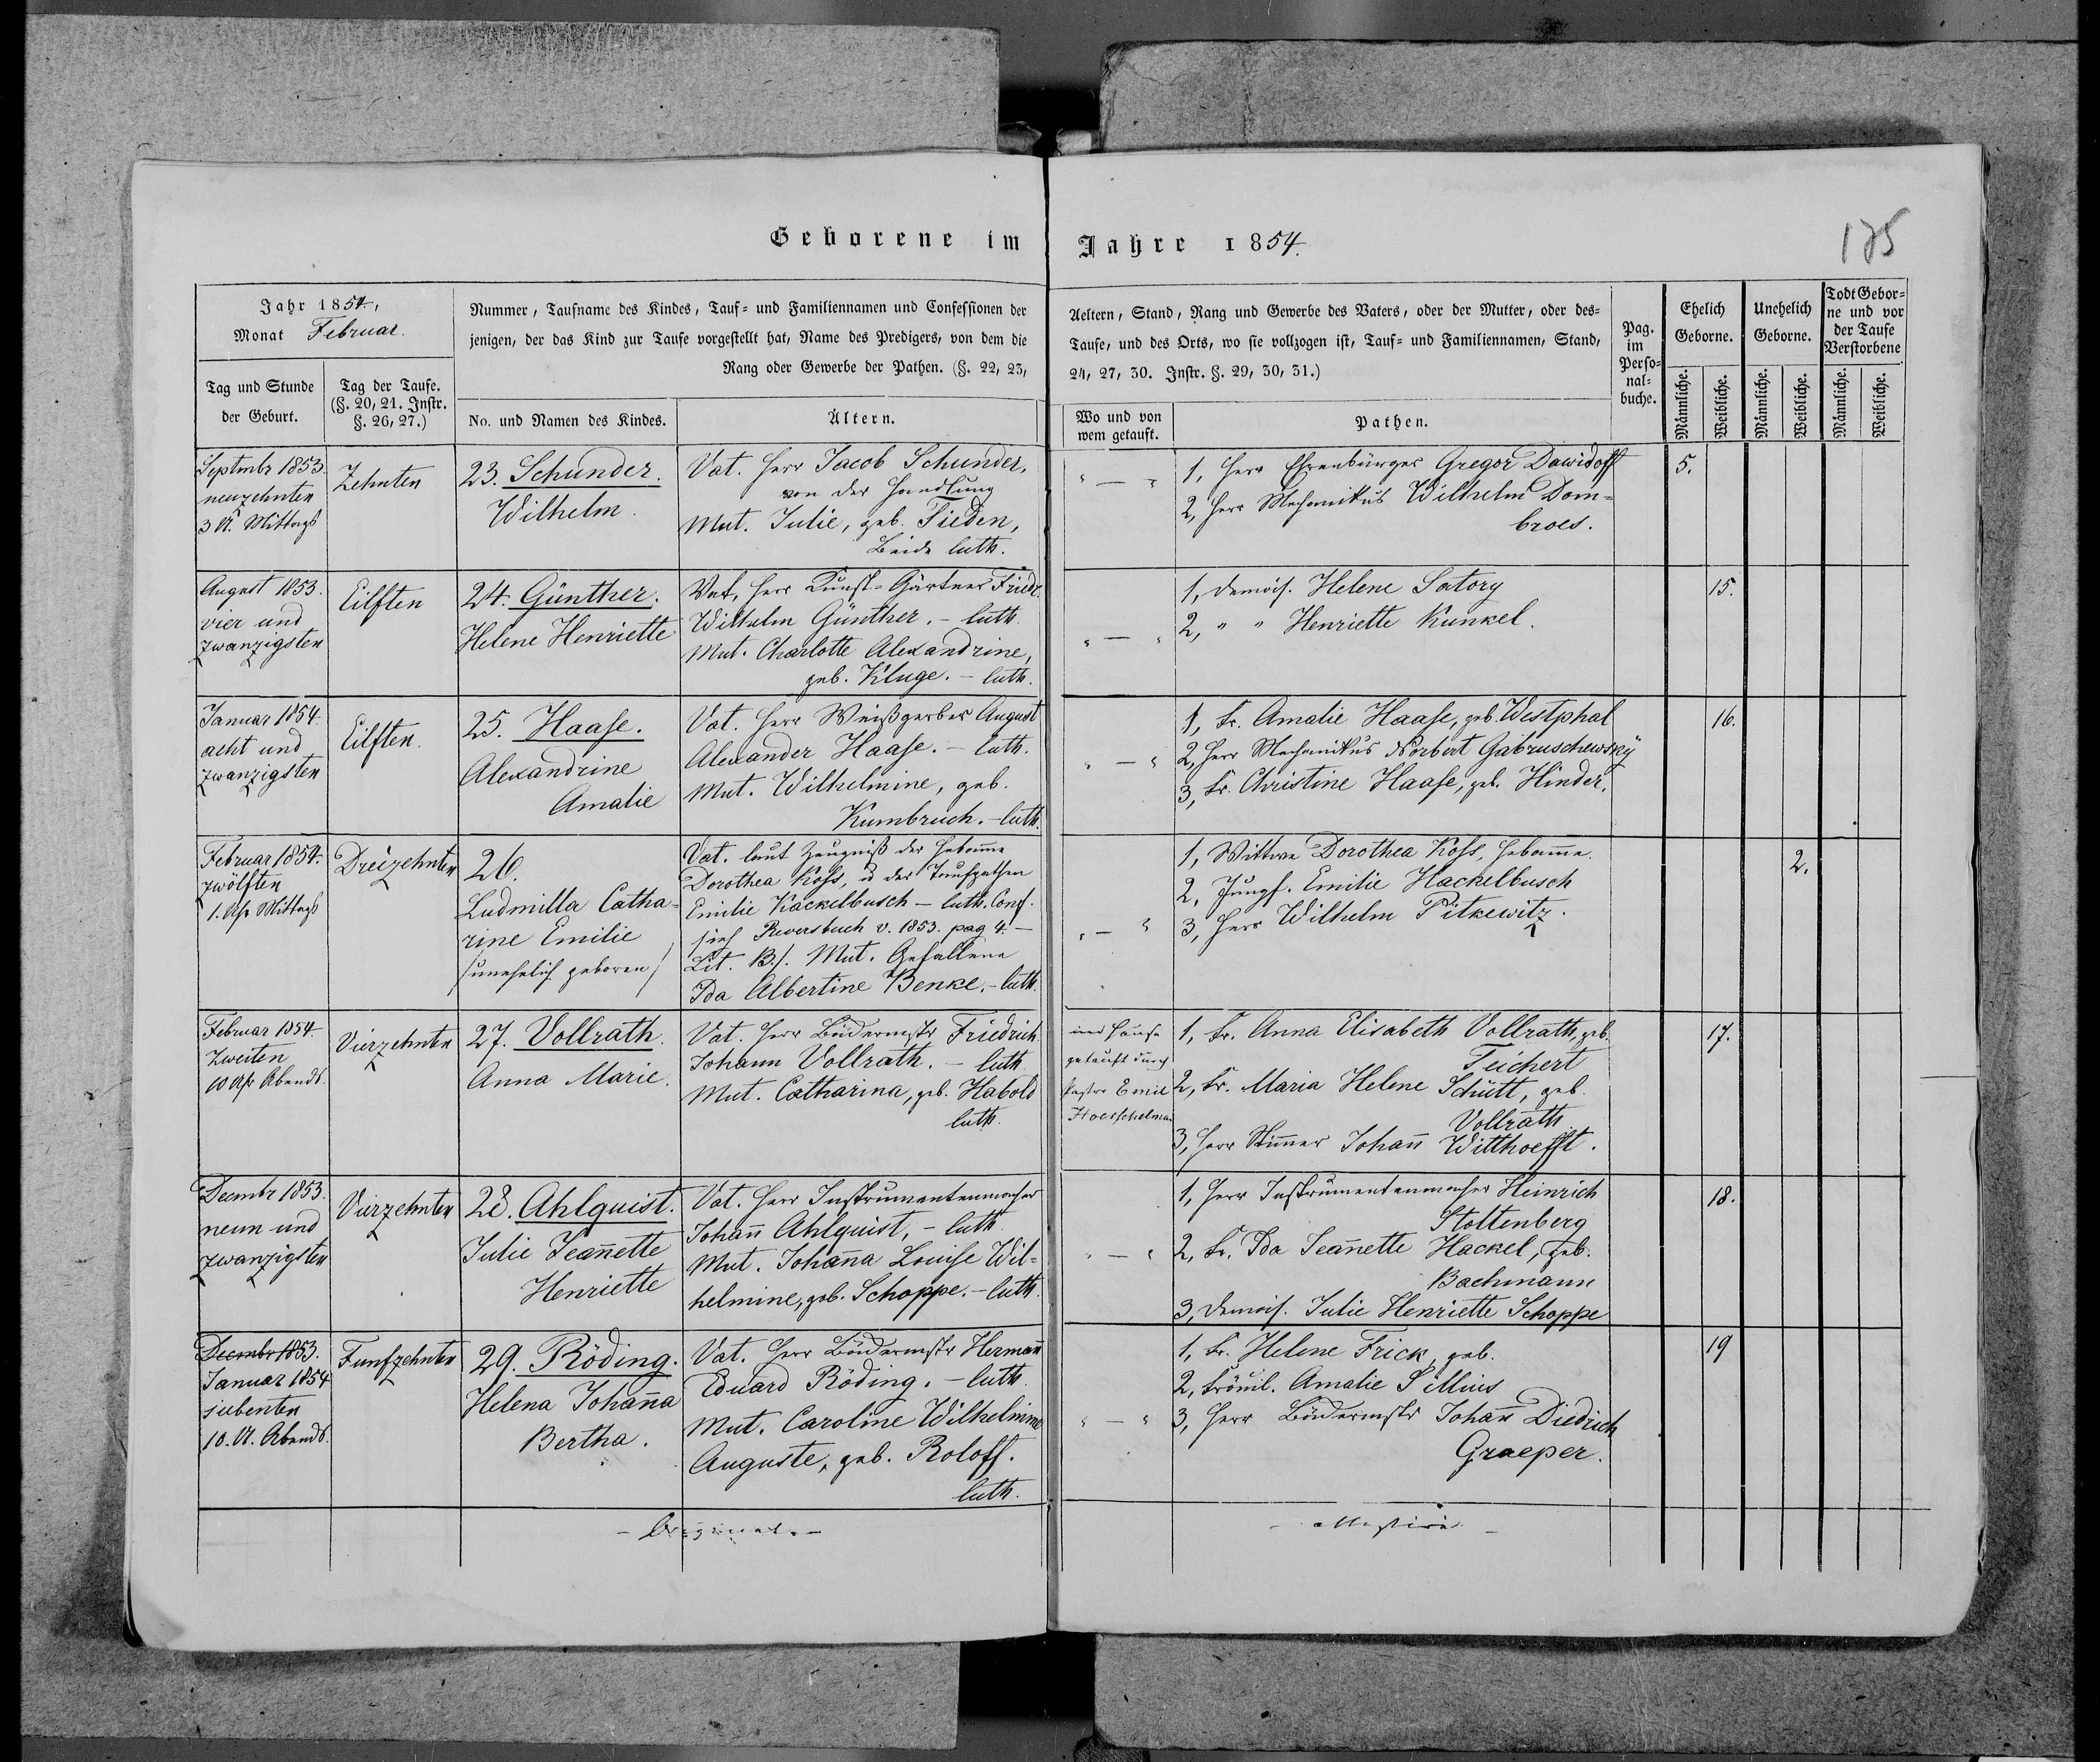 Geborene im Jahre 1854.
175
Jahr 1854,
Monat Februar.
Nummer, Taufname des Kindes, Tauf- und Familiennamen und Confessionen der
jenigen, der das Kind zur Taufe vorgestellt hat, Name des Predigers, von dem die
Rang oder Gewerbe der Pathen. (§. 22, 23,
Tag und Stunde
der Geburt.
Tag der Taufe.
(§. 20, 21. Instr.
§. 26, 27.)
No. und Namen des Kindes.
Ältern.
Aeltern, Stand, Rang und Gewerbe des Vaters, oder der Mutter, oder des-
Taufe, und des Orts, wo sie vollzogen ist, Tauf- und Familiennamen, Stand,
24, 27, 30. Instr. §. 29, 30, 31.)
Wo und von
wem getauft.
Pathen.
Pag.
im
Perso-
nal-
buche.
Ehelich
Geborne.
Unehelich
Geborne.
Todt Gebor-
ne und vor
der Taufe
Verstorbene
Männliche.
Weibliche.
Männliche.
Weibliche.
Männliche.
Weibliche.
Septmbr 1853.
neuzehnten
3 U. Mittags
Zehnten
23. Schunder.
Wilhelm.
Vat. Herr Jacob Schunder,
von der Handlung
Mut. Julie, geb. Tieden,
Beide luth.
" — "
1, Herr Ehrenbürger Gregor Dawidoff
2, Herr Mechanikus Wilhelm Dom-
broes.
5.
August 1853.
vier und
zwanzigsten
Eilften
24. Günther.
Helene Henriette
Vat. Herr Kunst-Gärtner Friedr.
Wilhelm Günther. – luth.
Mut. Charlotte Alexandrine,
geb. Kluge. – luth.
" — "
1, Demois. Helene Satory
2, " " Henriette Kunkel.
15.
Januar 1854.
acht und
zwanzigsten
Eilften.
25. Haase.
Alexandrine
Amalie
Vat. Herr Weißgerber August
Alexander Haase. – luth.
Mut. Wilhelmine, geb.
Kumbruch. – luth.
" — "
1, Fr. Amalie Haase, geb. Westphal
2, Herr Mechanikus Norbert Gabruschewsky
3, Fr. Christine Haase, geb. Hinder.
16.
Februar 1854.
zwölften
1. Uhr Mittags
Dreizehnten
26.
Ludmilla Catha-
rine Emilie
/unehelich geboren/
Vat. laut Zeugniß der Hebamme
Dorothea Koss, u der Taufpathen
Emilie Hackelbusch – luth. Conf.
sieh Reversbuch v. 1853. pag 4. –
Lit. B./. Mut. Gefallene
Ida Albertine Benke. – luth.
" — "
1, Wittwe Dorothea Koss, Hebamme.
2, Jungf. Emilie Hackelbusch
3, Herr Wilhelm Pitkewitz.
2.
Februar 1854.
Zweiten
10 Uhr Abends.
Vierzehnten
27. Vollrath.
Anna Marie.
Vat. Herr Budermstr Friedrich
Johann Vollrath. – luth.
Mut. Catharina, geb. Habold
luth.
im Hause
getauft durch
Pastor Emil
1, Fr. Anna Elisabeth Vollrath, geb.
Teichert
2, Fr. Maria Helene Schütt, geb.
Vollrath
3, Herr Johann Witthoefft.
17.
Decmbr 1853.
neun und
zwanzigsten
Vierzehnten
28. Ahlquist.
Julie Jeannette
Henriette
Vat. Herr Instrumentenmacher
Johann Ahlquist, – luth.
Mut. Johanna Louise Wil-
helmine, geb. Schoppe. – luth.
" — "
1, Herr Instrumentenmacher Heinrich
Stoltenberg
2, Fr. Ida Jeannette Hackel, geb.
Bachmann
3, Demois. Julie Henriette Schoppe
18.
Decmbr 1853.
Januar 1854
siebenten
10. U. Abends.
Funfzehnten
29. Röding.
Helena Johanna
Bertha.
Vat. Herr Budermstr Hermann
Eduard Röding. – luth.
Mut. Caroline Wilhelmine
Auguste, geb. Roloff.
luth.
" — "
1, Fr. Helene Frick, geb.
2, Fräuil. Amalie Sillius
3, Herr Budermstr Johann Diedrich
Graeper.
19